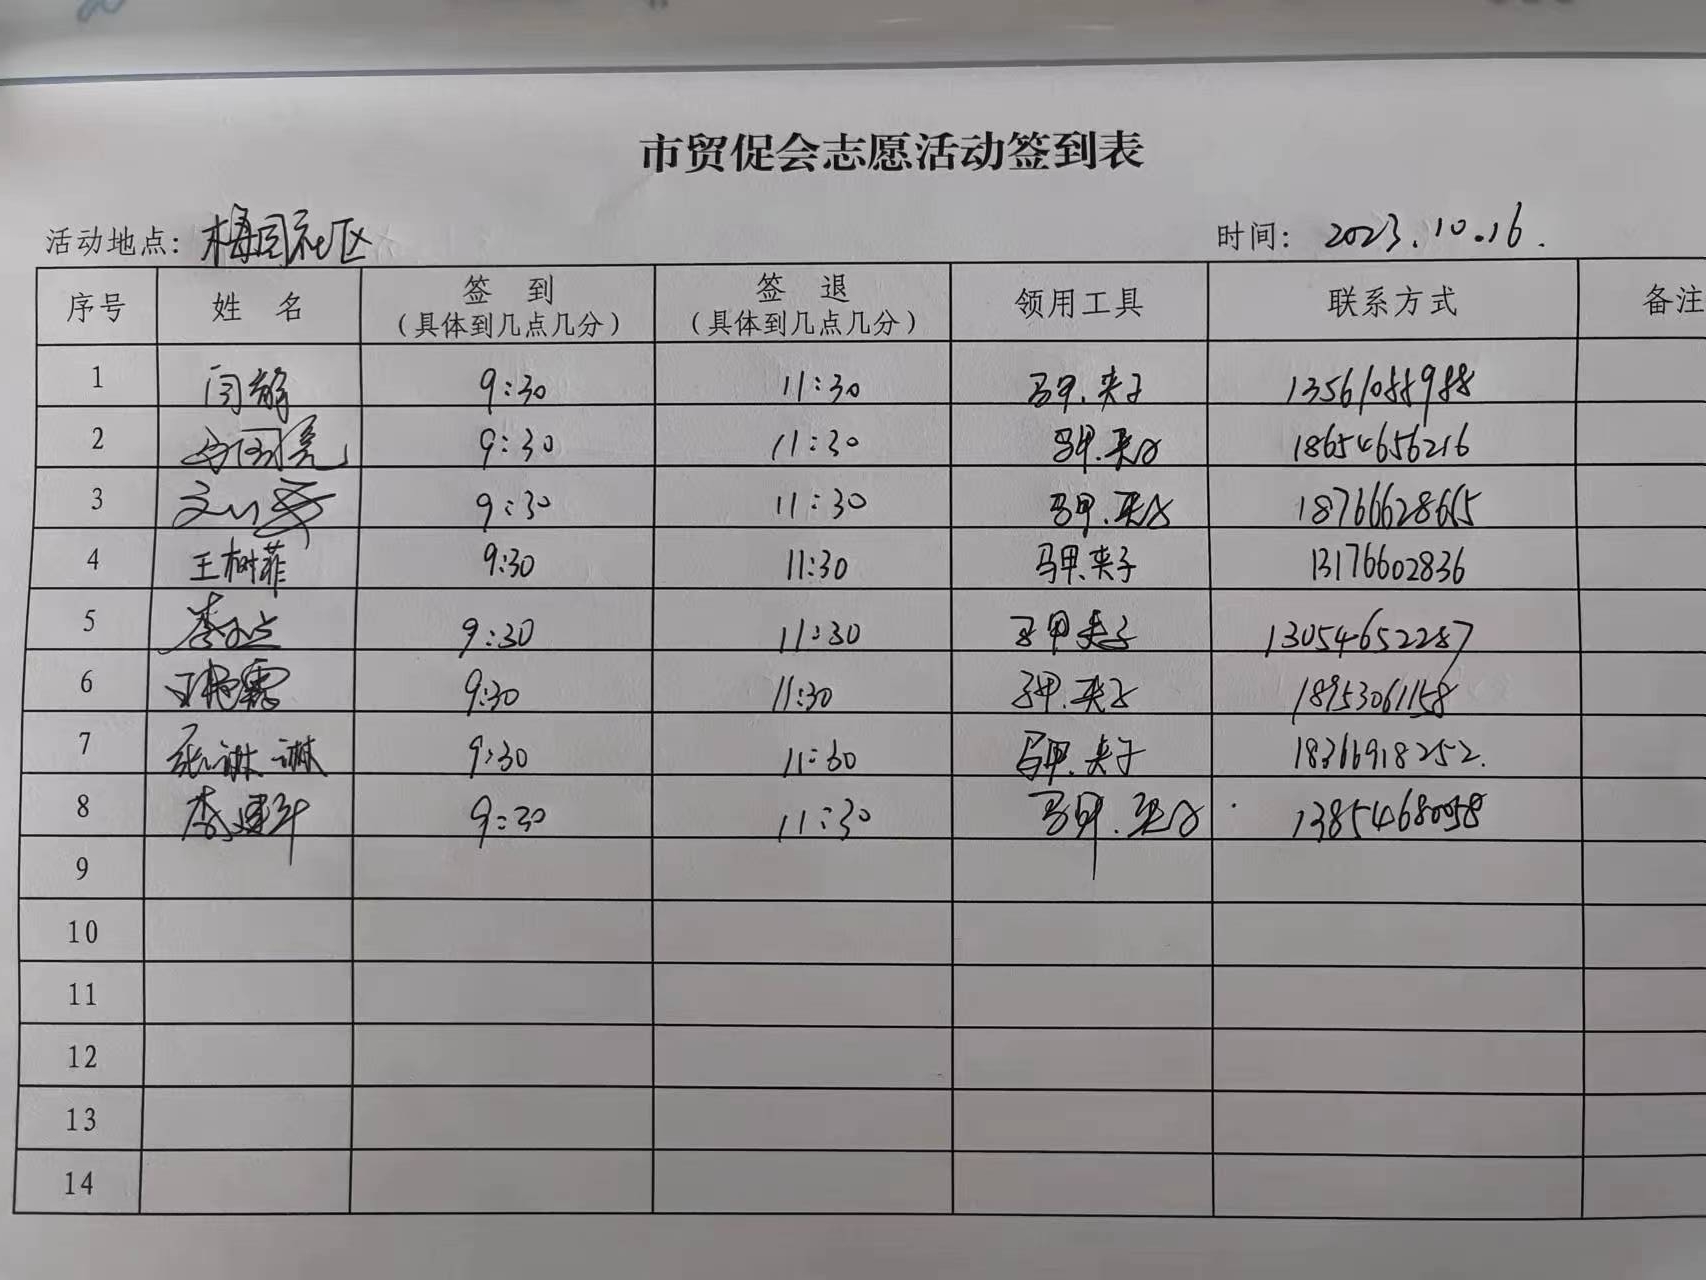 市贸促会志愿活动签到表
活动地点：梅园社区 时间：2023.10.16.
序号 姓 名 签 到（具体到几点几分） 签 退（具体到几点几分） 领用工具 联系方式 备注
1 闫静 9:30 11:30 马甲.夹子 13561088988
2 9:30 11:30 马甲.夹子 18654656216
3 9:30 11:30 马甲.夹子 18766628665
4 王树菲 9:30 11:30 马甲.夹子 13176602836
5 9:30 11:30 马甲 夹子 13054652287
6 9:30 11:30 马甲.夹子 18953061158
7 张琳琳 9:30 11:30 马甲.夹子 18366918252.
8 李建华 9:30 11:30 马甲.夹子 13854680058
9
10
11
12
13
14